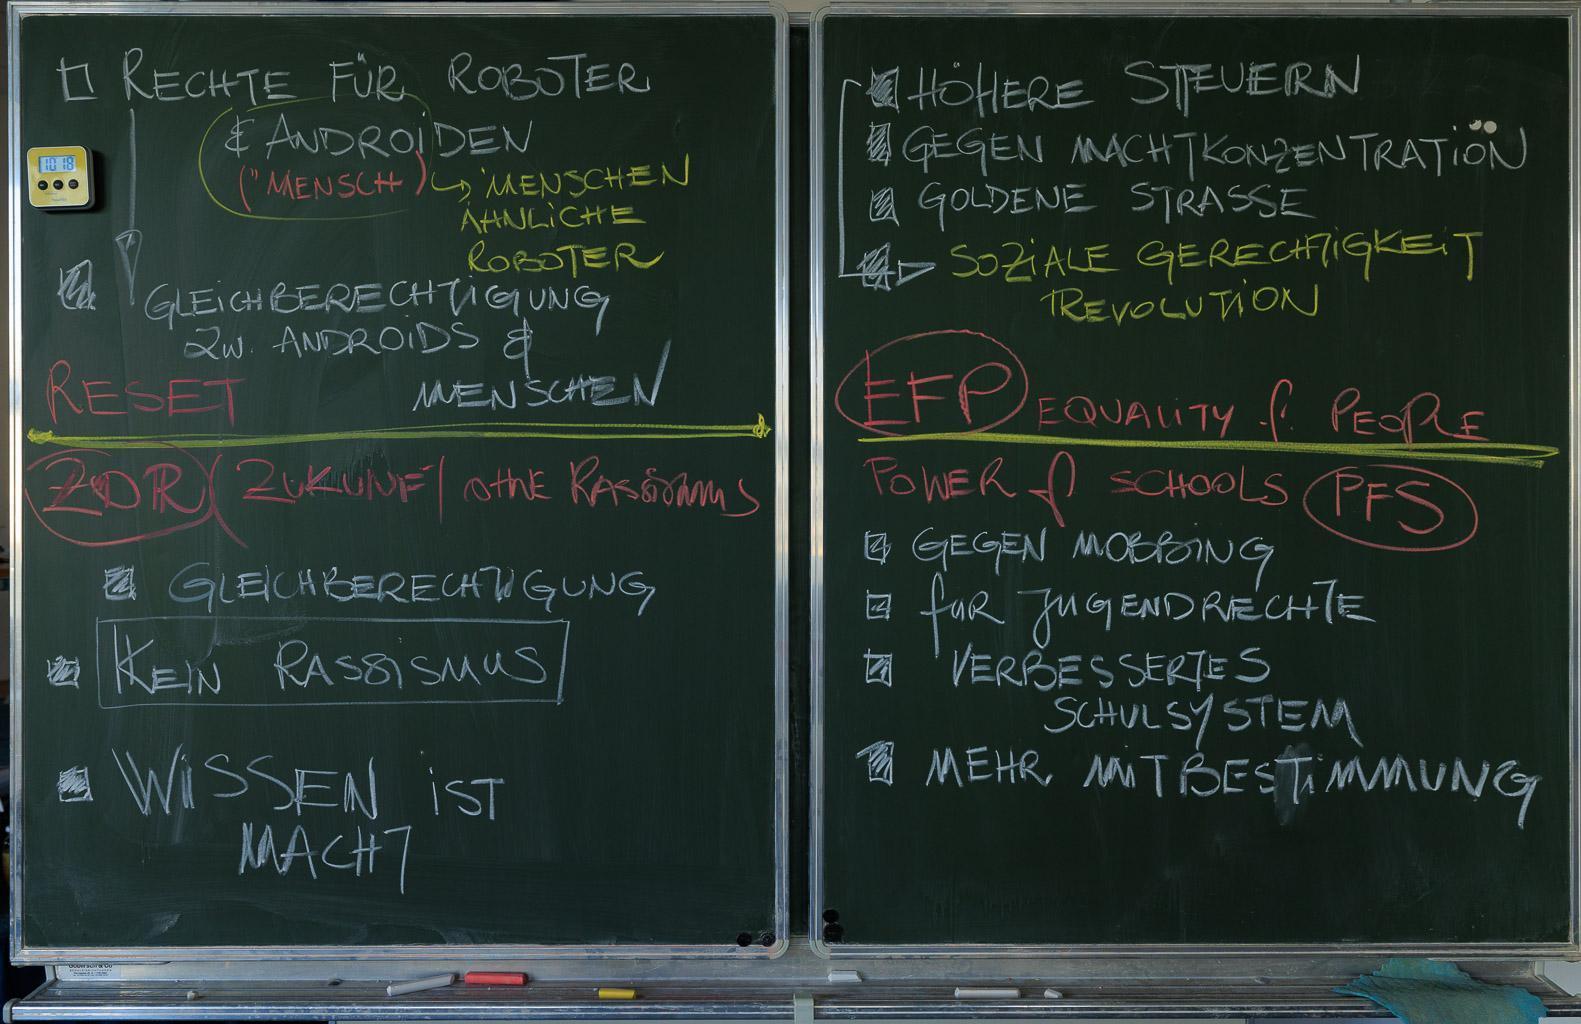 RECHTE FÜR ROBOTER
& ANDROIDEN
("MENSCH) ↳ "MENSCHEN
ÄHNLICHE
ROBOTER
GLEICHBERECHTIGUNG
ZW. ANDROIDS &
MENSCHEN
RESET
ZOR (ZUKUNFT OHNE RASSISMUS
GLEICHBERECHTIGUNG
KEIN RASSISMUS
WISSEN IST
MACHT
10 18
HÖHERE STEUERN
GEGEN MACHTKONZENTRATION
GOLDENE STRASSE
SOZIALE GERECHTIGKEIT
REVOLUTION
EFP EQUALITY f. PEOPLE
POWER f. SCHOOLS PFS
GEGEN MOBBING
für JUGENDRECHTE
VERBESSERTES
SCHULSYSTEM
MEHR MITBESTIMMUNG